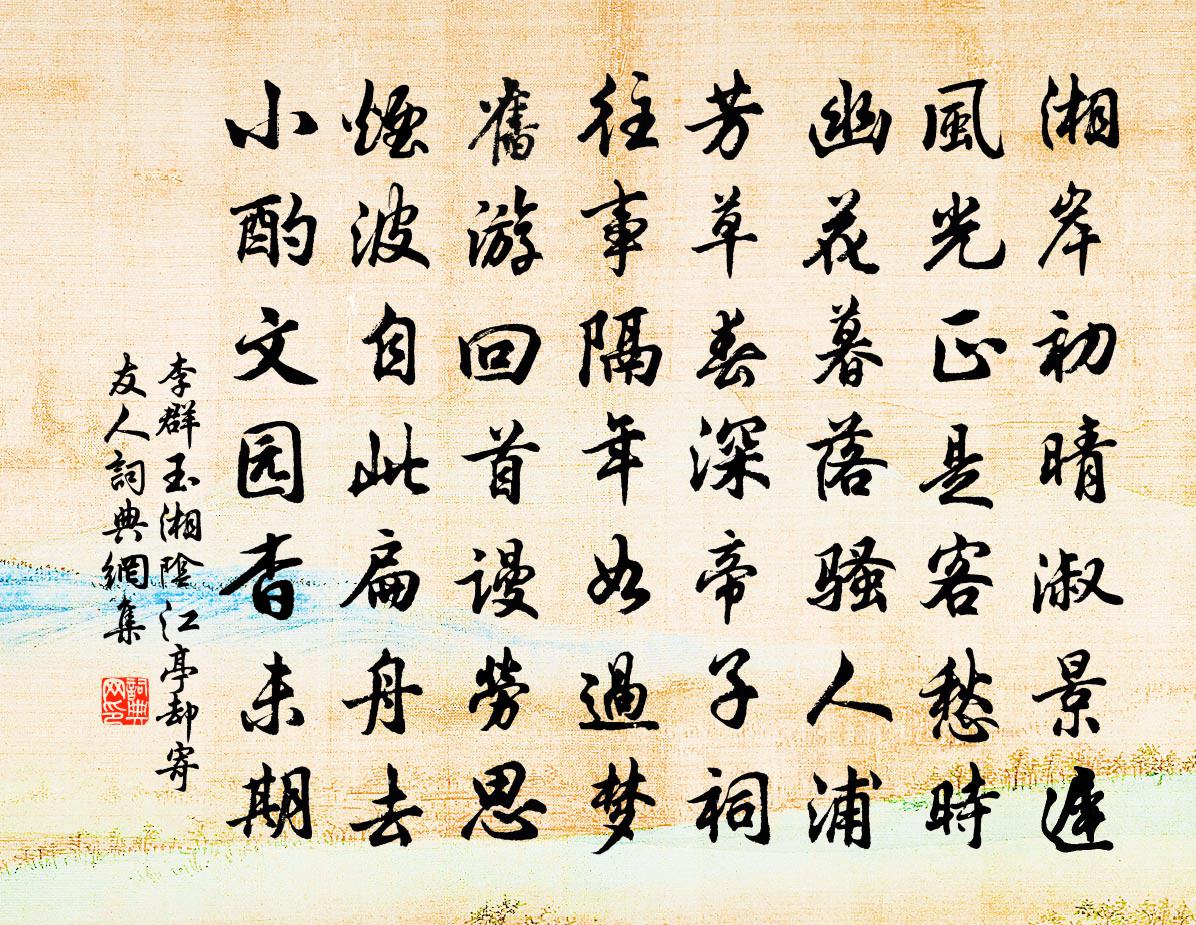 湘岸初晴淑景遲
風光正是客愁時
幽花暮落騷人浦
芳草春深帝子祠
往事隔年如過梦
舊游回首謾勞思
煙波自此扁舟去
小酌文园杳未期
李群玉湘陰江亭却寄
友人詞典網集
詞典网印